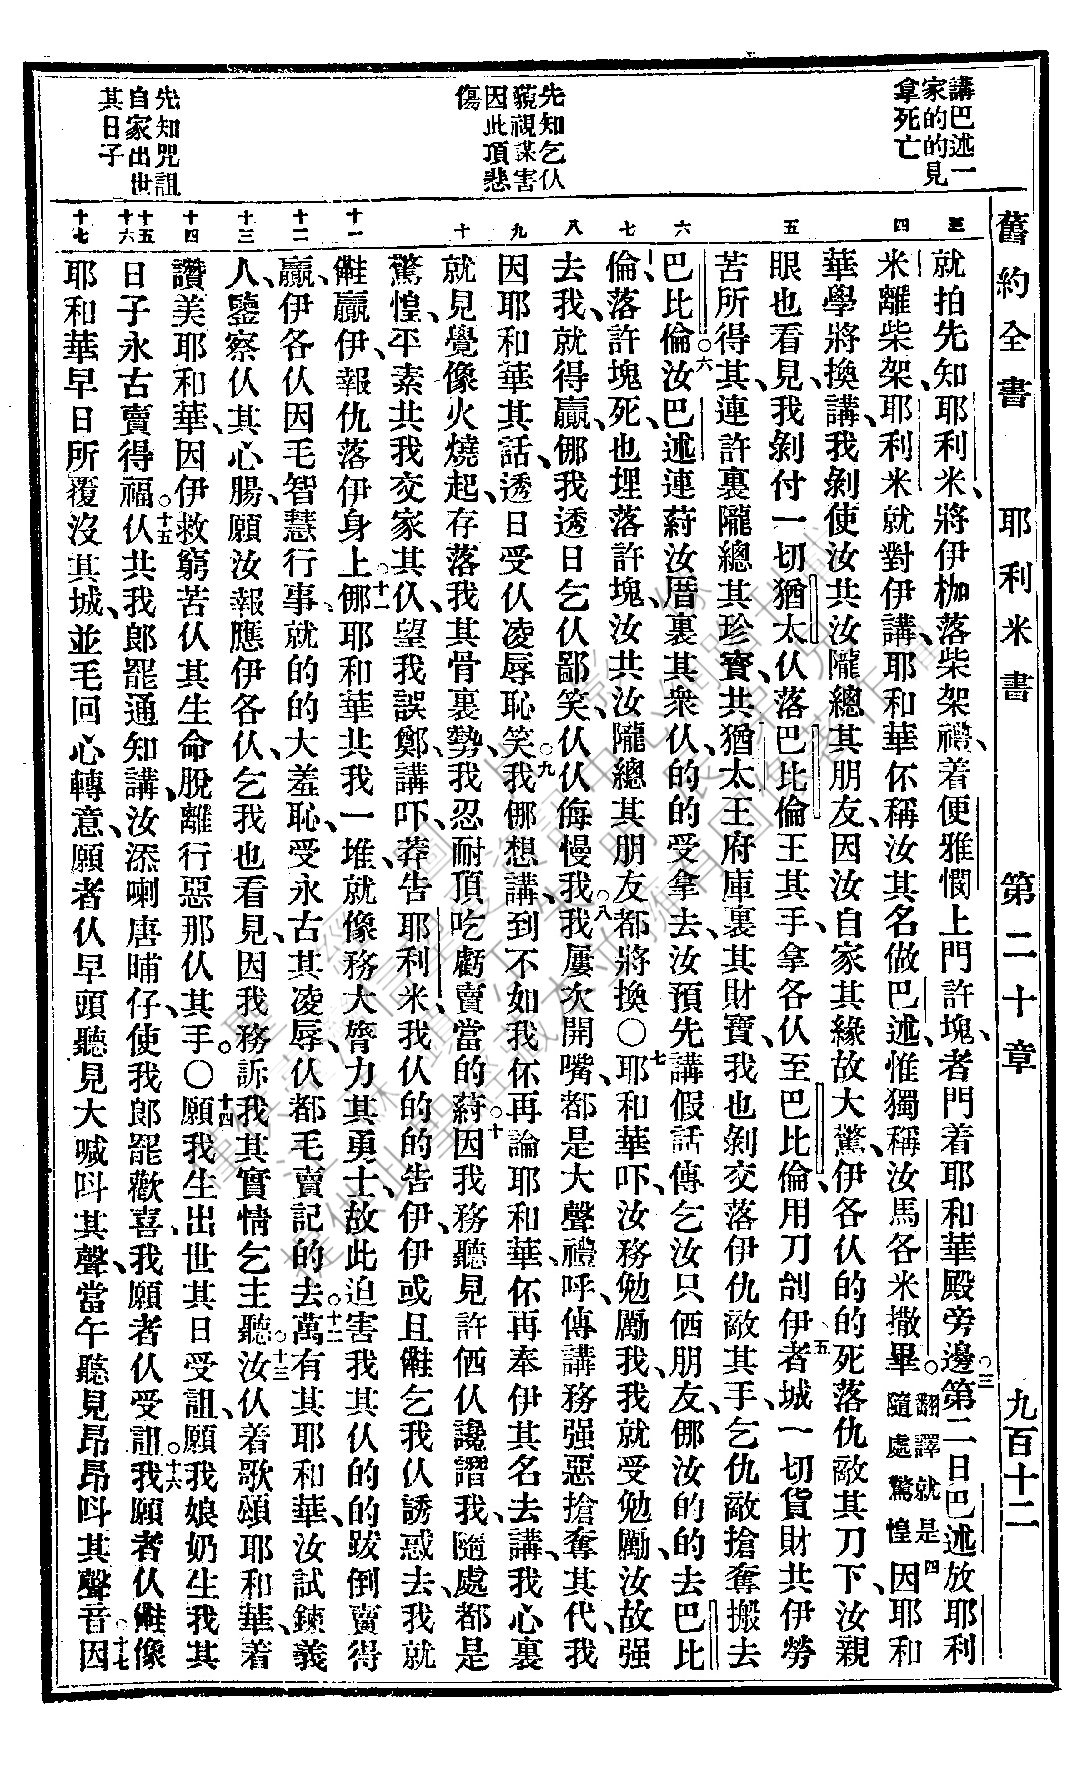 舊約全書 耶利米書 第二十章 九百十二
講巴述一
家的的見
拿死亡
先知乞仈
藐視謀害
因此項悲
傷
先知咒詛
自家出世
其日子
三 四 五 六 七 八 九 十 十一 十二 十三 十四 十五 十六 十七
就拍先知耶利米、將伊枷落柴架禮、着便雅憫上門許塊、者門着耶和華殿旁邊○三第二日巴述放耶利
米離柴架、耶利米就對伊講、耶和華伓稱汝其名做巴述、惟獨稱汝馬各米撒畢。翻譯就是隨處驚惶四因耶和
華學將換講、我剝使汝共汝隴總其朋友、因汝自家其緣故大驚、伊各仈的的死落仇敵其刀下、汝親
眼也看見、我剝付一切猶太仈落巴比倫王其手、拿各仈至巴比倫、用刀刣伊。五者城一切貨財共伊勞
苦所得其、連許裏隴總其珍寶、共猶太王府庫裏其財寶、我也剝交落伊仇敵其手、乞仇敵搶奪搬去
巴比倫。○六汝巴述連蔣汝厝裏其衆仈、的的受拿去、汝預先講假話傳乞汝只価朋友、㑚汝的的去巴比
倫、落許塊死、也埋落許塊、汝共汝隴總其朋友都將換○七耶和華吓、汝務勉厲我、我就受勉厲、汝故强
去我、就得贏、㑚我透日乞仈鄙笑、仈仈侮慢我。○八我屢次開嘴、都是大聲禮呼、傳講務强惡搶奪其代、我
因耶和華其話、透日受仈凌辱恥笑。○九我㑚想講、到不如我伓再論耶和華、伓再奉伊其名去講、我心裏
就見覺像火燒起、存落我其骨裏勢、我忍耐頂吃虧、賣當的蔣。○十因我務聽見許価仈讒譖我、隨處都是
驚惶、平素共我交家其仈、望我誤鄭、講吓、莽告耶利米、我仈的的告伊、伊或且㒇乞我仈誘惑去、我就
㒇贏伊、報仇落伊身上。○十一㑚耶和華共我一堆、就像務大膂力其勇士、故此迫害我其仈的的跋倒、賣得
贏、伊各仈因毛智慧行事、就的的大羞恥、受永古其凌辱、仈都毛賣記的去。○十二萬有其耶和華、汝試鍊義
人、鑒察仈其心腸、願汝報應伊各仈、乞我也看見、因我務訴我其實情乞主聽。○十三汝仈着歌頌耶和華、着
讚美耶和華、因伊救窮苦仈其生命、脫離行惡那仈其手。○十四願我生出世其日受詛、願我娘奶生我其
日子永古賣得福。○十五仈共我郎罷通知講、汝添喇唐晡仔、使我郎罷歡喜、我願者仈受詛。○十六我願者仈㒇像
耶和華早日所覆沒其城、並毛回心轉意、願者仈早頭聽見大喊叫其聲、當午聽見昂昂叫其聲音。○十七因